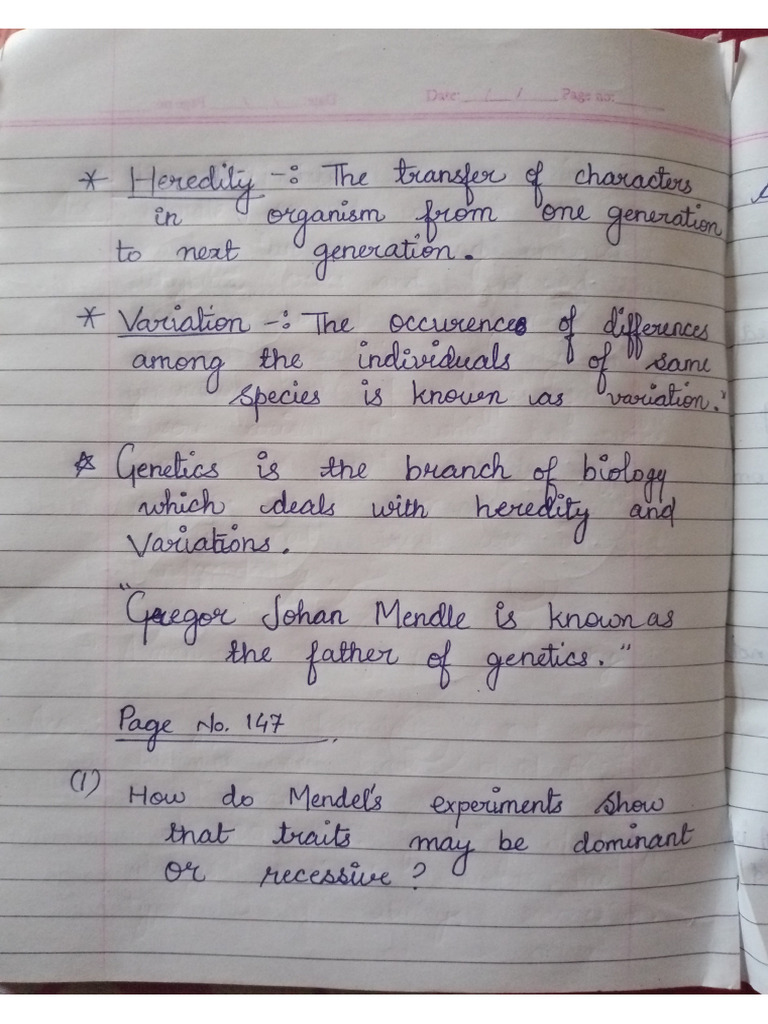 Date: __/__/____ Page no: ______
* Heredity -: The transfer of characters
in organism from one generation
to next generation.
* Variation -: The occurences of differences
among the individuals of same
species is known as variation."
* Genetics is the branch of biology
which deals with heredity and
Variations.
"Gregor Johan Mendle is known as
the father of genetics."
Page No. 147
(1) How do Mendel's experiments show
that traits may be dominant
or recessive?